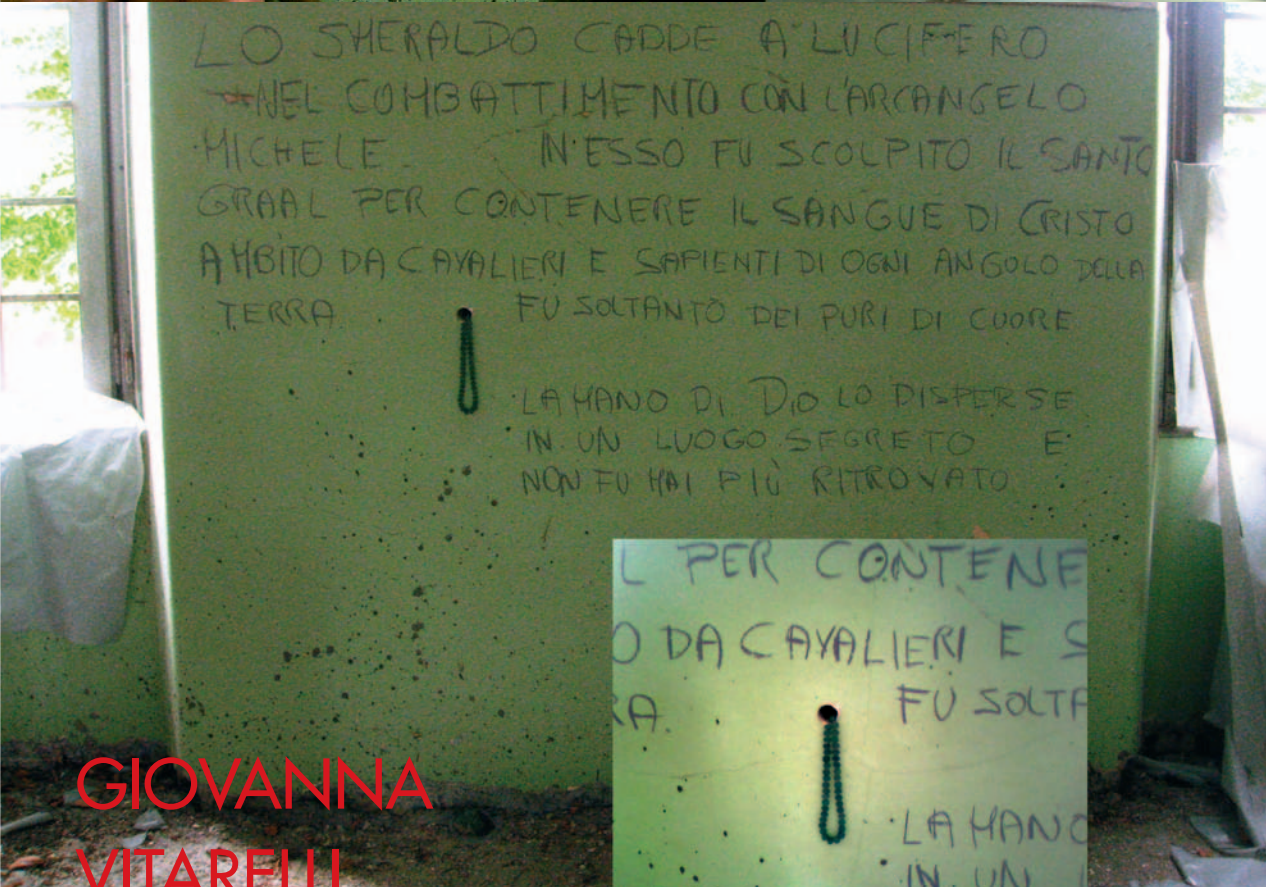 LO SMERALDO CADDE A LUCIFERO
NEL COMBATTIMENTO CON L'ARCANGELO
MICHELE IN ESSO FU SCOLPITO IL SANTO
GRAAL PER CONTENERE IL SANGUE DI CRISTO
AMBITO DA CAVALIERI E SAPIENTI DI OGNI ANGOLO DELLA
TERRA FU SOLTANTO DEI PURI DI CUORE
LA MANO DI DIO LO DISPERSE
IN UN LUOGO SEGRETO E
NON FU MAI PIÙ RITROVATO
L PER CONTENE
O DA CAVALIERI E S
RA FU SOLTA
LA MANO
IN UN
GIOVANNA
VITARELLI